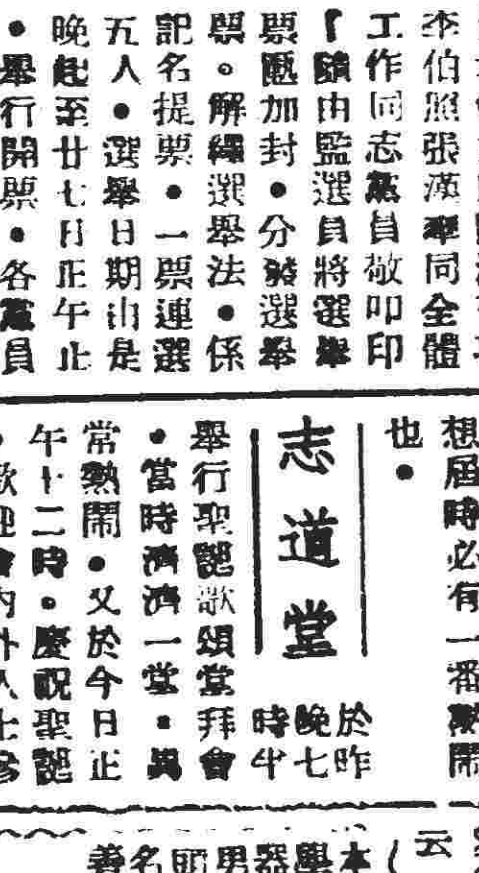 李伯照張漢華同全體
工作同志黨員敬叩印
隨由監選員將選舉
票匭加封●分發選舉
票。解釋選舉法●係
記名提票●一票連選
五人●選舉日期由是
晚起至廿七日正午止
●舉行開票●各黨員
想屆時必有一番熱鬧
也●
志道堂
於昨
晚七
時半
舉行聖誕歌頌堂拜會
●當時濟濟一堂●異
常熱鬧●又於今日正
午十二時●慶祝聖誕
●歡迎會內外人士參
云
本學器男頭名善